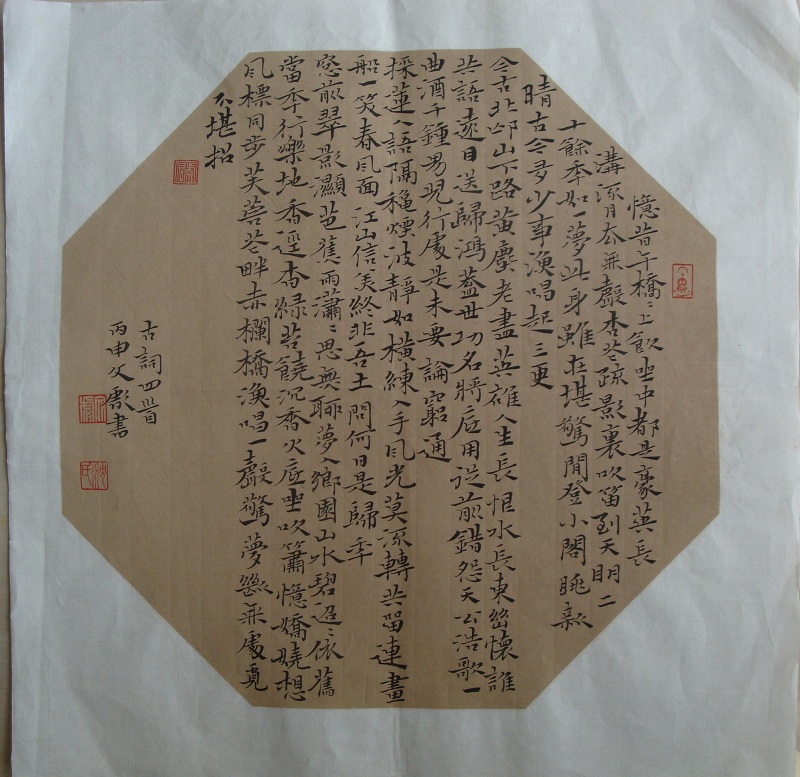 憶昔午橋〻上飲坐中都是豪英長
溝流月去無聲杏花疏影裏吹笛到天明二
十餘年如一夢此身雖在堪驚閒登小閣眺新
晴古今多少事漁唱起三更
今古北邙山下路黃塵老盡英雄人生長恨水長東幽懷誰
共語遠目送歸鴻蓋世功名將底用從前錯怨天公浩歌一
曲酒千鍾男兒行處是未要論窮通
採蓮人語隔穐煙波靜如橫練入手風光莫流轉共留連畫
船一笑春風面江山信美終非吾土問何日是歸年
窓前翠影濕芭蕉雨瀟〻思無聊夢入鄉園山水碧迢〻依舊
當年行樂地香徑杳綠苔饒沉香火底坐吹簫憶嬌嬈想
風標同步芙蓉花畔赤欄橋漁唱一聲驚夢斷無處覓
不堪招
古詞四首
丙申文彪書